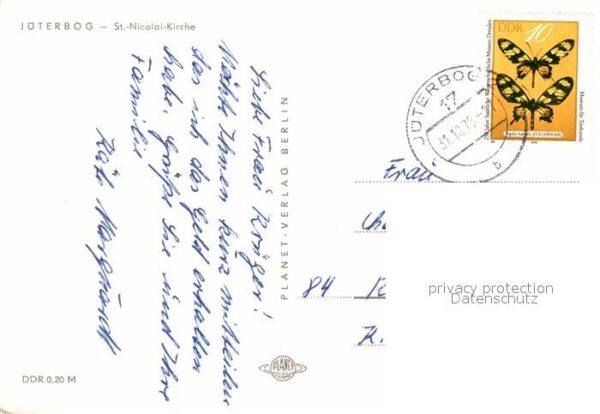 JÜTERBOG – St.-Nicolai-Kirche
Liebe Frau Krüger!
Möchte Ihnen kurz mitteilen
das ich das Geld erhalten
habe. Grüße Sie und Ihre
Familie
Käte
DDR 0,20 M
PLANET-VERLAG BERLIN
PLANET
JÜTERBOG
17
31.10.72
b
DDR 10
250 Jahre Staatliche Wissenschaftliche Museen Dresden
Museum für Tierkunde
(STAUDINGER)
Frau
84
K.
privacy protection
Datenschutz